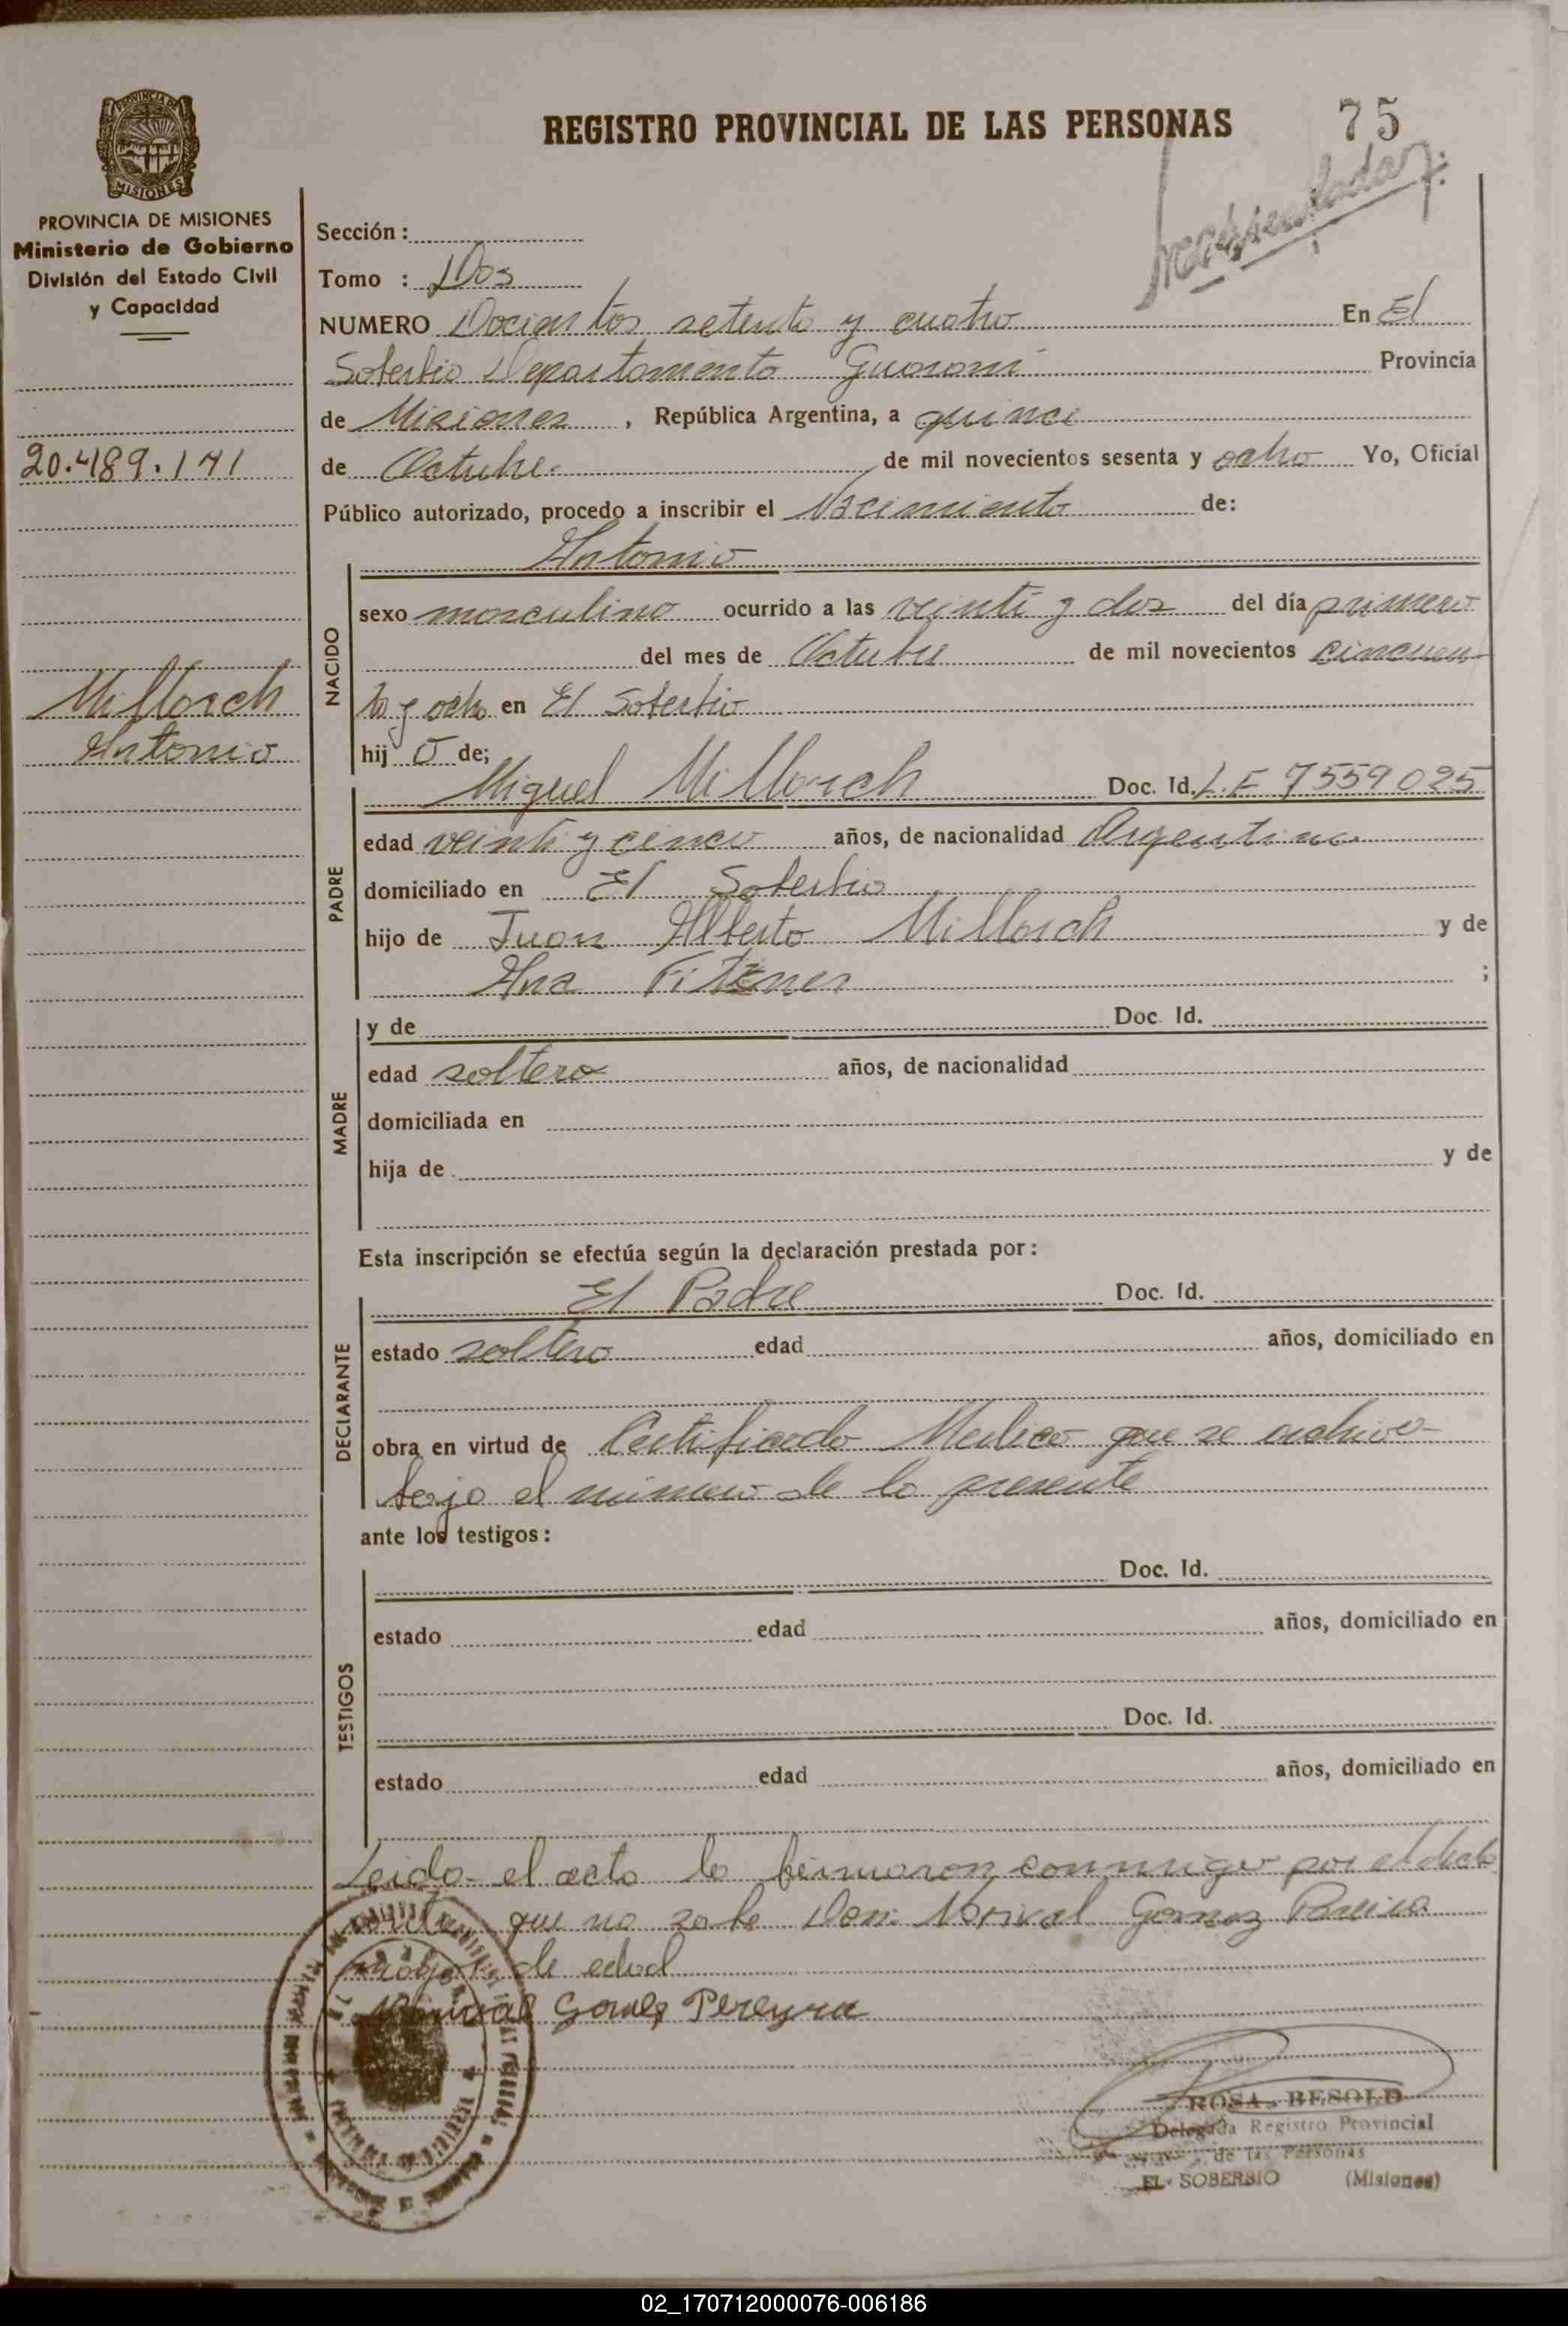 REGISTRO PROVINCIAL DE LAS PERSONAS
75
PROVINCIA DE MISIONES
PROVINCIA DE MISIONES
Ministerio de Gobierno
División del Estado Civil
y Capacidad
20.489.141
Millorch
Antonio
Sección :
Tomo : Dos
NUMERO Docientos setenta y cuatro En El
Soberbio Departamento Guarani Provincia
de Misiones , República Argentina, a quince
de Octubre de mil novecientos sesenta y ocho Yo, Oficial
Público autorizado, procedo a inscribir el Nacimiento de:
Antonio
NACIDO
sexo masculino ocurrido a las veinti y dos del día primero
del mes de Octubre de mil novecientos cincuen
ta y ocho en El Soberbio
hij o de;
PADRE
Miguel Millorch Doc. Id. L.E 7559025
edad veinti y cinco años, de nacionalidad Argentina
domiciliado en El Soberbio
hijo de Juan Alberto Millorch y de
Ana ;
MADRE
y de Doc. Id.
edad soltero años, de nacionalidad
domiciliada en
hija de y de
Esta inscripción se efectúa según la declaración prestada por :
DECLARANTE
El Padre Doc. Id.
estado soltero edad años, domiciliado en
obra en virtud de Certificado Medico que se archiva
bajo el numero de la presente
ante los testigos :
TESTIGOS
Doc. Id.
estado edad años, domiciliado en
Doc. Id.
estado edad años, domiciliado en
Leida el acta la firmaron conmigo por el
que no sabe Don Norival Gomez Pereira
mayor de edad
Gomez Pereyra
ROSA BESOLD
Delegada Registro Provincial
de las Personas
EL SOBERBIO (Misiones)
02_170712000076-006186